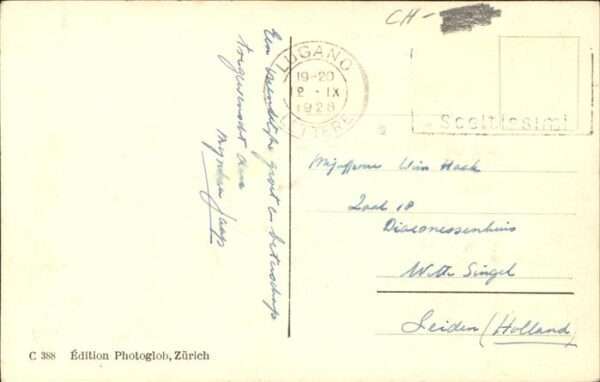 CH-
LUGANO
19-20
2 · IX
1928
LETTERE
Sceltissimi
Een vriendelijke groet en beterschap
toegewenscht van
Mejuffrouw Wim Haak
Zaal 18
Diaconessenhuis
Witte Singel
Leiden (Holland)
C 388 Édition Photoglob, Zürich